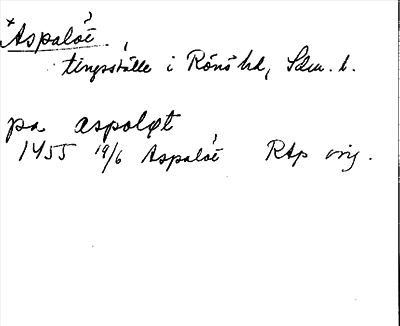 *Aspalöt
tingsställe i Rönö hd, Sdm. l.
pa aspoløt
1455 19/6 Aspalöt RAp orig.